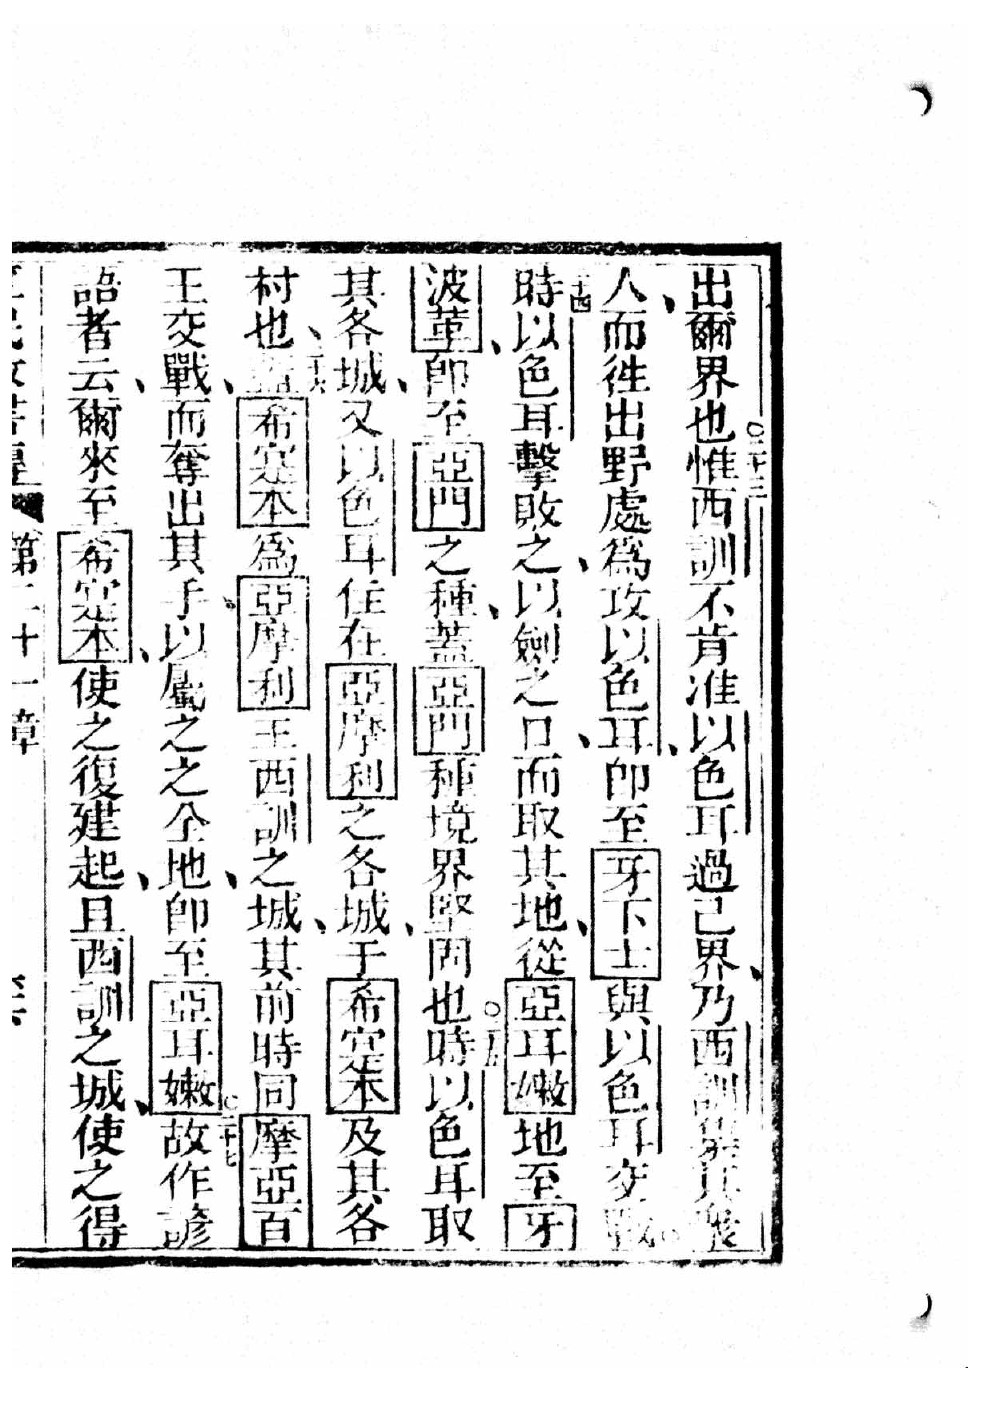 出爾界也○二十三惟西訓不肯准以色耳過己界、乃西訓集其衆
人、而徃出野處爲攻以色耳、卽至牙下士與以色耳交戰○
二十四時以色耳擊敗之、以劍之口、而取其地、從亞耳嫩地至牙
波革、卽至亞門之種、蓋亞門種境界堅固也○二十五時以色耳取
其各城、又以色耳住在亞摩利之各城、于希寔本及其各
村也、二十六蓋希寔本爲亞摩利王西訓之城、其前時同摩亞百
王交戰、而奪出其手以屬之之全地、卽至亞耳嫩○二十七故作諺
語者云、爾來至希寔本、使之復建起、且西訓之城、使之得
第二十一章